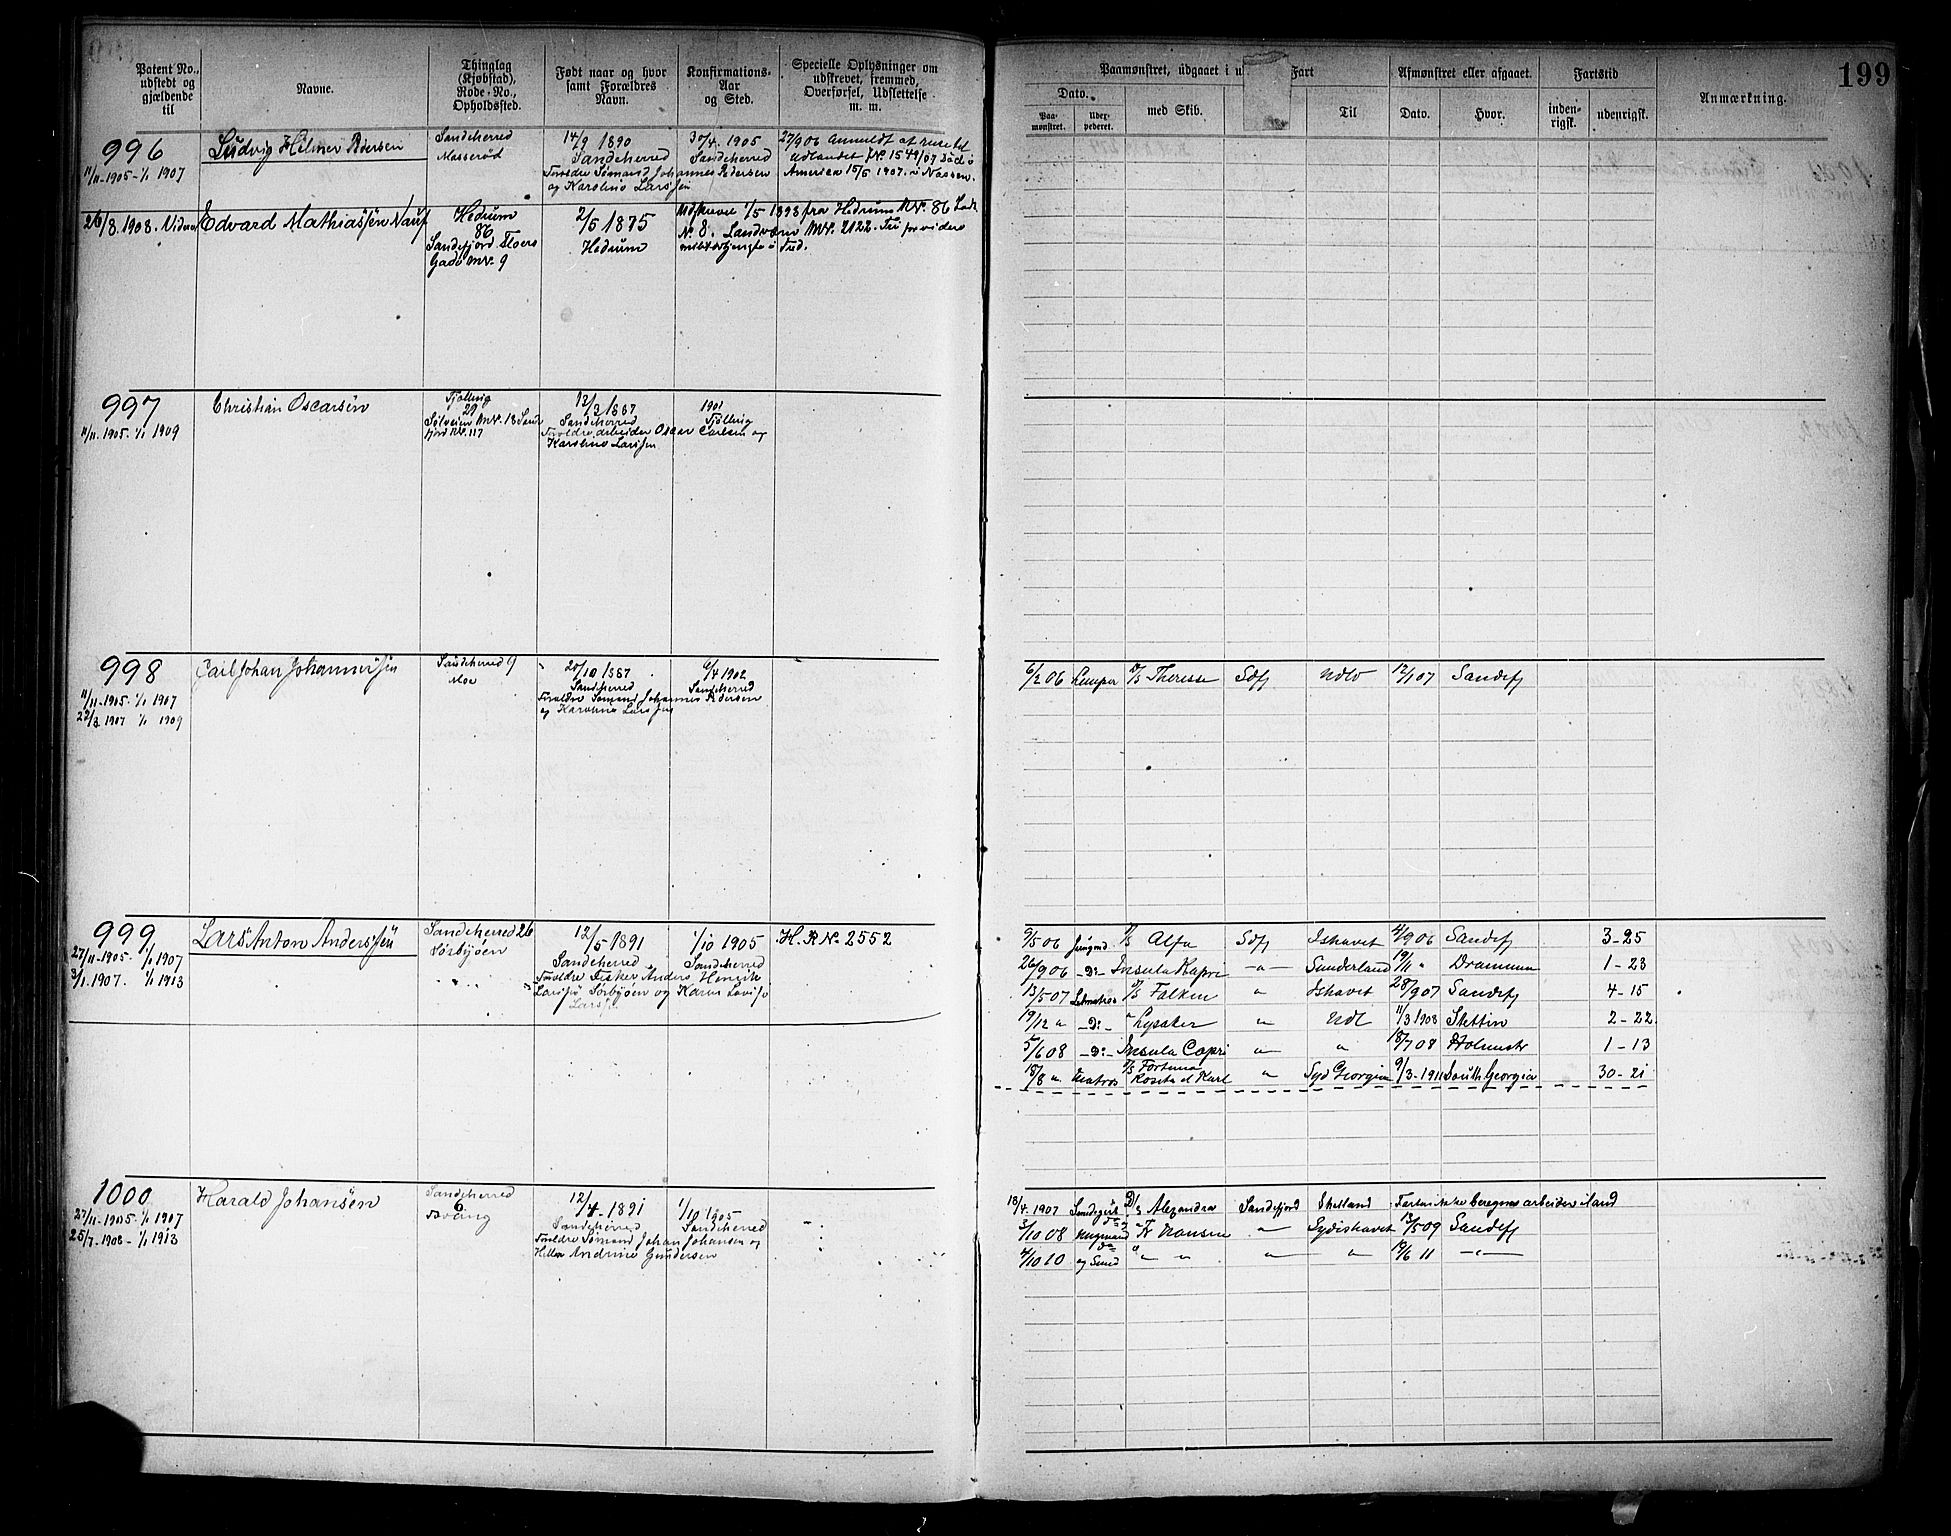 199
Patent No., udstedt og gjældende til
Navne.
Thinglag (Kjøbstad), Rode-No., Opholdssted.
Født naar og hvor samt Forældres Navn.
Konfirmations-Aar og Sted.
Specielle Oplysninger om udskrevet, fremmed, Overførsel, Udslettelse m. m.
Paamønstret, udgaaet i u Fart
Dato.
Paa-mønstret.
med Skib.
Til
Afmønstret eller afgaaet.
Dato.
Hvor.
Fartstid
inden-rigsk.
udenrigsk.
Anmærkning.
996
11/11-1905-1/1 1907
Ludvig Hilmer Pedersen
Sandeherred
Masserød
14/9 1890
Sandeherred
Forældre Sømand Johannes Pedersen
og Karoline Larssen
30/4. 1905
Sandeherred
27/9 06 Anmeldt at reise til
Udlandet J.No 1549/07 Død i
America 15/5 1907.
26/8. 1908.
Edvard Mathiassen Nauf
Hedrum
86
Sandefjord
Gade No. 9
2/5 1875
Hedrum
1/5 1898 fra Hedrum No. 86
No 8. Landværn No. 2122.
997
11/11-1905. 1/1 1909
Christian Oscarsen
Tjølling
29
13/3 1887
Sandeherred
Forældre Arbeider Oscar Carlsen og
Karoline Larssen
1901
Tjølling
998
11/11-1905. 1/1 1907
22/3 1907 1/1 1909
Carl Johan Johannessen
Sandeherred 9
Moe
20/10 1887
Sandeherred
Forældre Sømand Johannes Pedersen
og Karoline Larssen
6/4 1902
Sandeherred
6/2 06 Lemper D/S Therese Sdfj Udl 12/1 07 Sandefj
999
27/11-1905. 1/1 1907
3/1. 1907. 1/1 1913
Lars Anton Anderssen
Sandeherred 26
Sørbyøen
12/5 1891
Sandeherred
Forældre Fisker Anders Henrik
Larssen Sørbyøen og Karen Lovise
Larss.
1/10 1905
Sandeherred
H. R No. 2552
9/5 06 Jungmd D/S Alfa Sdfj Ishavet 4/9 06 Sandefj 3-25
26/9 06 -D:- Insula Kapri -"- Sunderland 19/11 " Drammen 1-23
13/5 07 Letmatros D/S Falken " Ishavet 28/9 07 Sandefj 4-15
19/12 " -D:- " Lysaker " Udl 11/3 1908 Stettin 2-22
5/6 08 -D:- Insula Capri " " 18/7 08 Holmestr 1-13
18/8 ". Matros D/S Fortuna
Rosita el Karl " Syd Georgia 9/3-1911 South Georgia 30-21
1000
27/11-1905. 1/1 1907
25/7-1908-1/1 1913
Harald Johansen
Sandeherred
6
12/4. 1891
Sandeherred
Forældre Sømand Johan Johansen og
Andrine Gundersen
1/10 1905
Sandeherred
18/4. 1907 D/S Alexandra Sandefjord Shetland Farten ikke beregnes arbeider i land
3/10 08 " Fr Nansen " Sydishavet 13/5 09 Sandefj
4/10 10 og Smed " " " " " 19/6 11 -"-